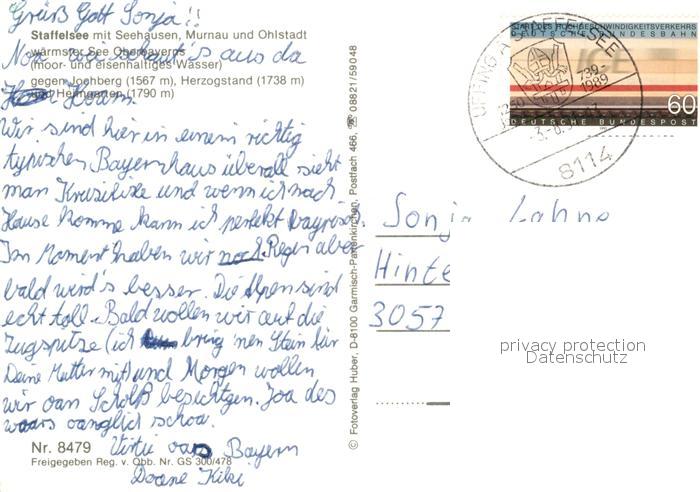 Grüß Gott Sonja!!
Staffelsee mit Seehausen, Murnau und Ohlstadt
wärmster See Oberbayerns
(moor- und eisenhaltiges Wasser)
gegen Jochberg (1567 m), Herzogstand (1738 m)
und Heimgarten (1790 m)
Na wie schaut's aus da
Hoam.
Wir sind hier in einem richtig
typischen Bayernhaus überall sieht
man Kruzifixe und wenn ich nach
Hause komme kann ich perfekt bayrisch.
Im Moment haben wir noch Regen aber
bald wird's besser. Die Alpen sind
echt toll. Bald wollen wir auf die
Zugspitze (ich bring 'nen Stein für
Deine Mutter mit) und Morgen wollen
wir oan Schloß besichtgen. Joa des
waars oanglich schoa.
Nr. 8479
Freigegeben Reg. v. Obb. Nr. GS 300/478
Bayern
Doane Kiki
© Fotoverlag Huber, D-8100 Garmisch-Partenkirchen, Postfach 466, ☎ 08821/59048
START DES HOCHGESCHWINDIGKEITSVERKEHRS
DEUTSCHE BUNDESBAHN
ICE
60
DEUTSCHE BUNDESPOST
UFFING A. STAFFELSEE
739-
1989
1250
8114
Sonja
Hinte
3057
privacy protection
Datenschutz